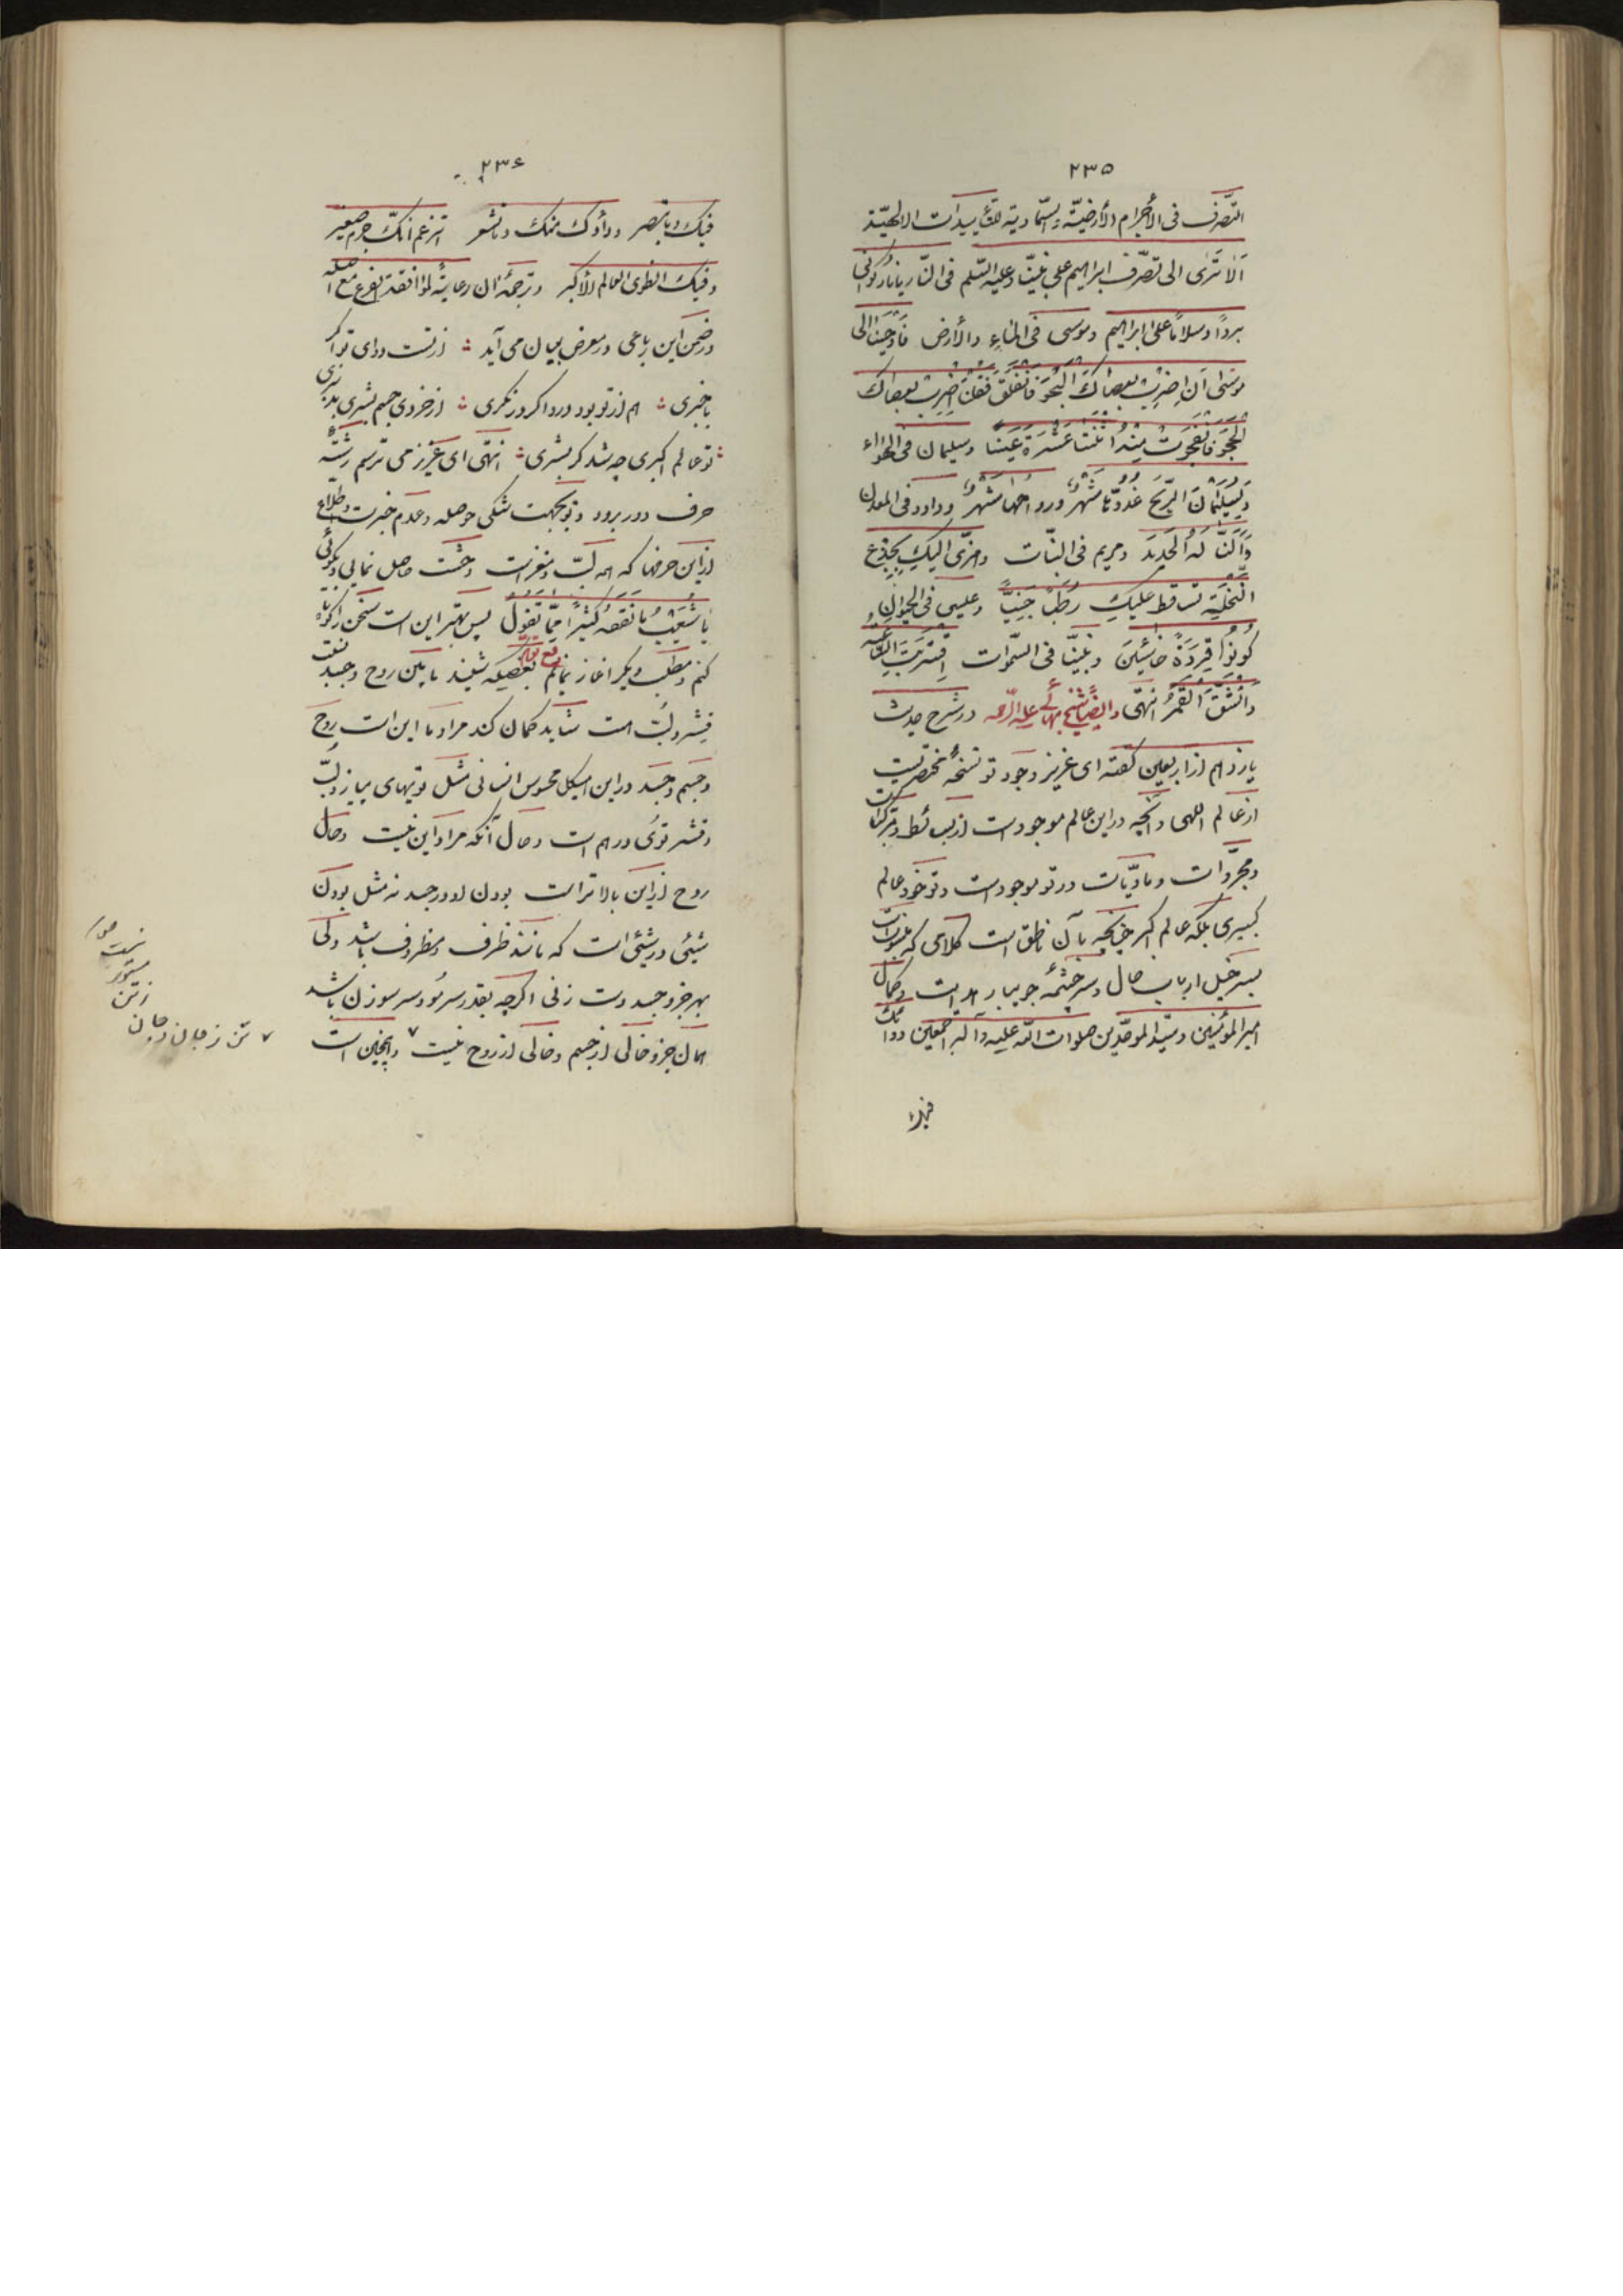 ۲۳۵
التّصرّف فی الأجرام الأرضیّة والسّماویة للتأییدات الالهیّة
الا تری الی تصرّف ابراهیم علی نبیّنا وعلیه السّلم فی النّار یا نار کونی
بردًا وسلامًا علی ابراهیم وموسی فی الماء والأرض فأوحینا الی
موسی ان اضرب بعصاک البحر فانفلق فقلنا اضرب بعصاک
الحجر فانفجرت منه اثنتا عشرة عینًا وسلیمان فی الهواء
ولسلیمان الرّیح غدوّها شهر ورواحها شهر وداود فی المعدن
وألنّا له الحدید ومریم فی النّبات وهزّی الیک بجذع
النّخلة تساقط علیک رطبًا جنیًّا وعیسی فی الحیوان
کونوا قردة خاسئین ونبیّنا فی السّموات اقتربت السّاعة
وانشقّ القمر انتهی وایضًا شیخ بهائی علیه الرّحمه در شرح حدیث
یازدهم از اربعین گفته ای عزیز وجود تو نسخهٔ مختصریست
از عالم اللهی وآنچه در این عالم موجود است از بسائط ومرکّبات
ومجرّدات ومادّیّات در تو موجود است وتو خود عالم
کبیری بلکه عالم اکبر چنانچه بآن ناطق است کلامی که منسوبست
بسر خیل ارباب حال وسرچشمهٔ جویبار هدایت وکمال
امیر المؤمنین وسیّد الموحّدین صلوات اللّه علیه وآله اجمعین دوائک
فیک
۲۳۶
فیک وما تبصر وداؤک منک وما تشعر اتزعم انّک جرم صغیر
وفیک انطوی العالم الأکبر وترجمهٔ آن رعایةً لموافقة الفرع مع اصله
در ضمن این رباعی در معرض بیان می آید : از تست دوای تو اگر
باخبری : هم از تو بود درد اگر در نگری : از خردی جسم بشری بدتری
: تو عالم اکبری چه شد گر بشری : انتهی ای عزیز می ترسم رشتهٔ
حرف دور برود وتو بجهت تنگی حوصله وعدم خبرت واطلاع
از این حرفها که همه لبّ ومغز است وحشت حاصل نمایی وبگوئی
یا شعیب ما نفقه کثیرًا ممّا تقول پس بهتر این است سخن را کوتاه
کنم ومطلب دیگر آغاز نمایم رفع توهّم بعضی که شنیدند مابین روح وجسد نسبت
قشر ولبّ است شاید گمان کند مراد ما این است روح
وجسم وجسد در این هیکل محسوس انسانی مثل تویهای پیاز ولبّ
وقشر توی درهم است وحال آنکه مراد این نیست وحال
روح از این بالاتر است بودن او در جسد نه مثل بودن
شیئی در شیئی است که مانند ظرف ومظروف باشد ولی
بهر جزو جسد دست زنی اگرچه بقدر سر مو وسر سوزن باشد
همان جزو خالی از جسم وخالی از روح نیست ۷ وهمچنین است
۷ تن ز جان وجان
ز تن
مستور
نیست